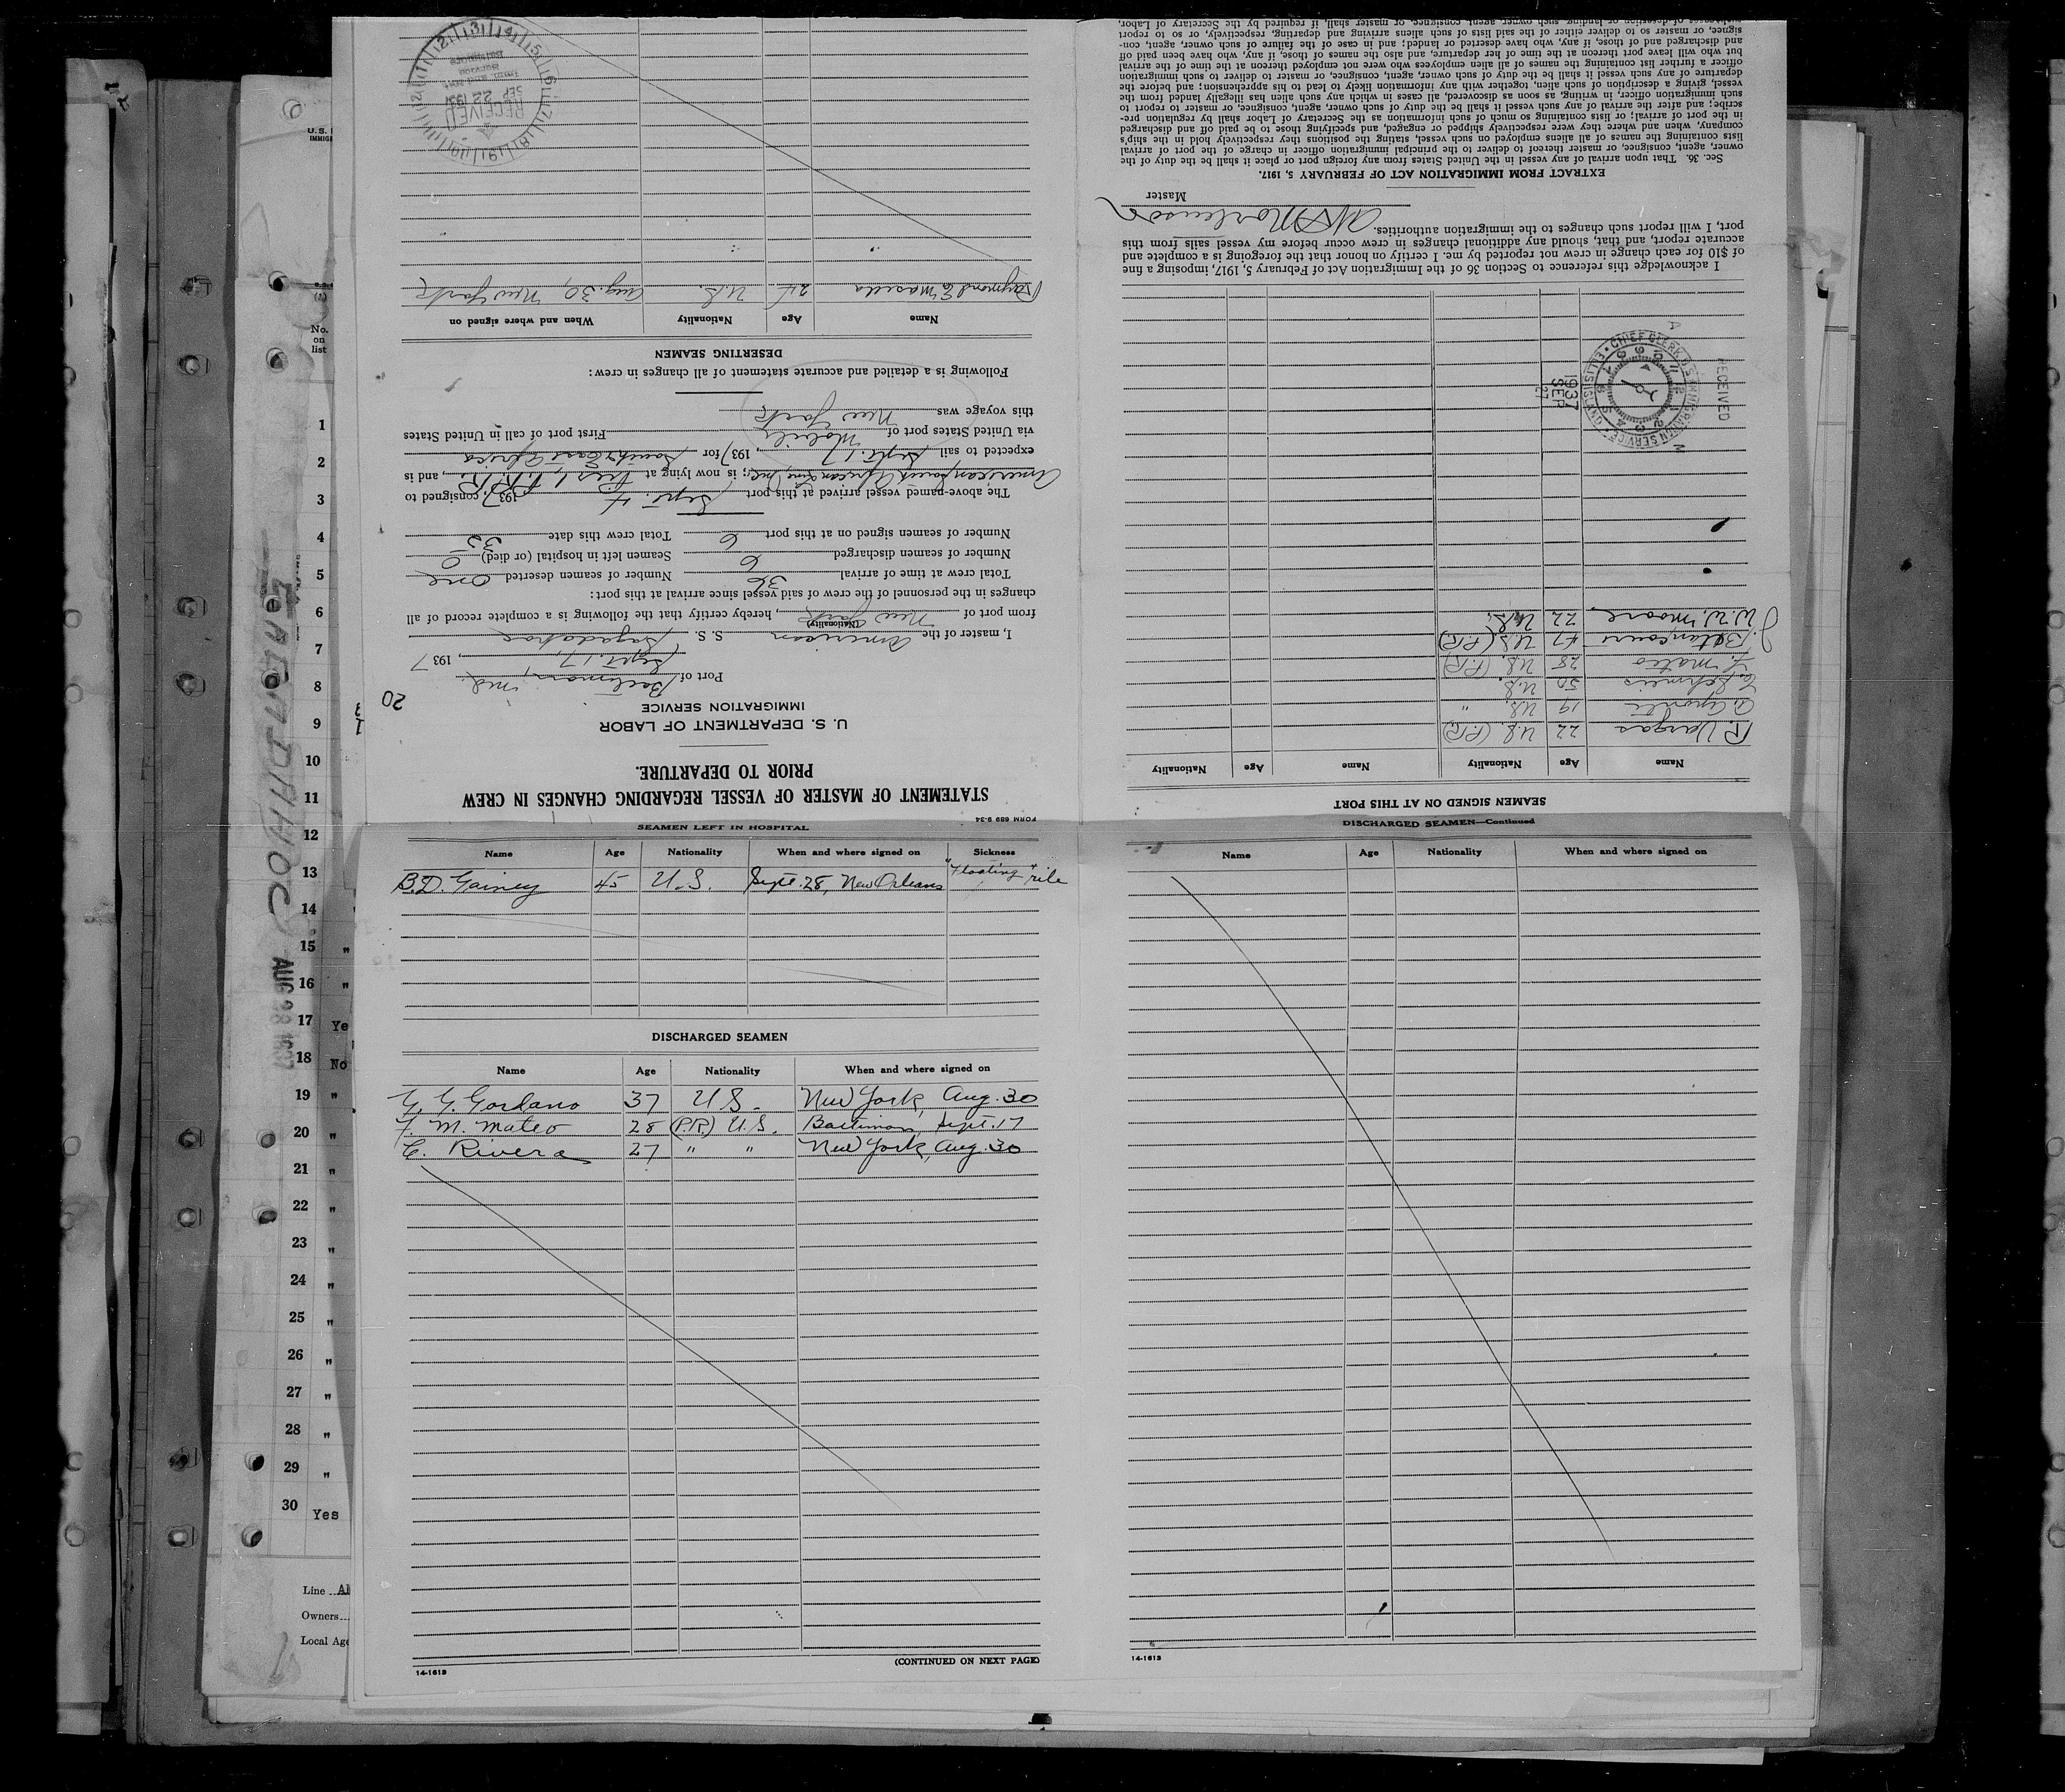 STATEMENT OF MASTER OF VESSEL REGARDING CHANGES IN CREW
PRIOR TO DEPARTURE.
U. S. DEPARTMENT OF LABOR
IMMIGRATION SERVICE
20
Port of Baltimore, Md.
Sept. 17, 1937
I, master of the American S. S. Sagadahoc
(Nationality)
from port of New York, hereby certify that the following is a complete record of all
changes in the personnel of the crew of said vessel since arrival at this port:
Total crew at time of arrival 36 Number of seamen deserted one
Number of seamen discharged 6 Seamen left in hospital (or died) 0
Number of seamen signed on at this port 6 Total crew this date 35
The above-named vessel arrived at this port Sept. 4, 1937, consigned to
American South African Line, Inc; is now lying at Pier 1, P.R.R., and is
expected to sail Sept. 17, 1937 for South & East Africa
via United States port of Mobile First port of call in United States
this voyage was New York
Following is a detailed and accurate statement of all changes in crew:
DESERTING SEAMEN
Name Age Nationality When and where signed on
Raymond E. Masella 24 U.S. Aug. 30, New York
RECEIVED
SEP 22 1937
Service
Baltimore
FORM 689 9-34
SEAMEN SIGNED ON AT THIS PORT
Name Age Nationality Name Age Nationality
R. Vargas 22 U.S. (P.R)
A. Aponte 19 U.S. "
50 U.S.
F. Mateo 28 U.S. (P.R)
J. Betancourt 47 U.S (P.R)
J. W. W. Moore 22 U.S.
RECEIVED
CHIEF CLERK U.S. IMMIGRATION SERVICE ELLIS ISLAND
1937
SEP
21
I acknowledge this reference to Section 36 of the Immigration Act of February 5, 1917, imposing a fine
of $10 for each change in crew not reported by me. I certify on honor that the foregoing is a complete and
accurate report, and that, should any additional changes in crew occur before my vessel sails from this
port, I will report such changes to the immigration authorities.
Mortensen
Master
EXTRACT FROM IMMIGRATION ACT OF FEBRUARY 5, 1917.
Sec. 36. That upon arrival of any vessel in the United States from any foreign port or place it shall be the duty of the
owner, agent, consignee, or master thereof to deliver to the principal immigration officer in charge of the port of arrival
lists containing the names of all aliens employed on such vessel, stating the positions they respectively hold in the ship's
company, when and where they were respectively shipped or engaged, and specifying those to be paid off and discharged
in the port of arrival; or lists containing so much of such information as the Secretary of Labor shall by regulation pre-
scribe; and after the arrival of any such vessel it shall be the duty of such owner, agent, consignee, or master to report to
such immigration officer, in writing, as soon as discovered, all cases in which any such alien has illegally landed from the
vessel, giving a description of such alien, together with any information likely to lead to his apprehension; and before the
departure of any such vessel it shall be the duty of such owner, agent, consignee, or master to deliver to such immigration
officer a further list containing the names of all alien employees who were not employed thereon at the time of the arrival
but who will leave port thereon at the time of her departure, and also the names of those, if any, who have been paid off
and discharged and of those, if any, who have deserted or landed; and in case of the failure of such owner, agent, con-
signee, or master so to deliver either of the said lists of such aliens arriving and departing, respectively, or so to report
such cases of desertion or landing, such owner, agent, consignee, or master shall, if required by the Secretary of Labor,
SEAMEN LEFT IN HOSPITAL
Name Age Nationality When and where signed on Sickness
B.D. Gainey 45 U.S. Sept. 28, New Orleans "Floating" rib
DISCHARGED SEAMEN
Name Age Nationality When and where signed on
G. G. Gordano 37 U S. New York, Aug. 30
F. M. Mateo 28 (P.R) U.S. Baltimore, Sept. 17
C. Rivera 27 " " New York, Aug. 30
(CONTINUED ON NEXT PAGE)
14-1613
DISCHARGED SEAMEN—Continued
Name Age Nationality When and where signed on
14-1613
U.S.
No.
on
list
1
2
3
4
5
6
7
8
9
10
11
12
13
14
15 "
16 "
17 Ye
18 No
19 "
20 "
21 "
22 "
23 "
24 "
25 "
26 "
27 "
28 "
29 "
30 Yes
Line
Owners
Local Age